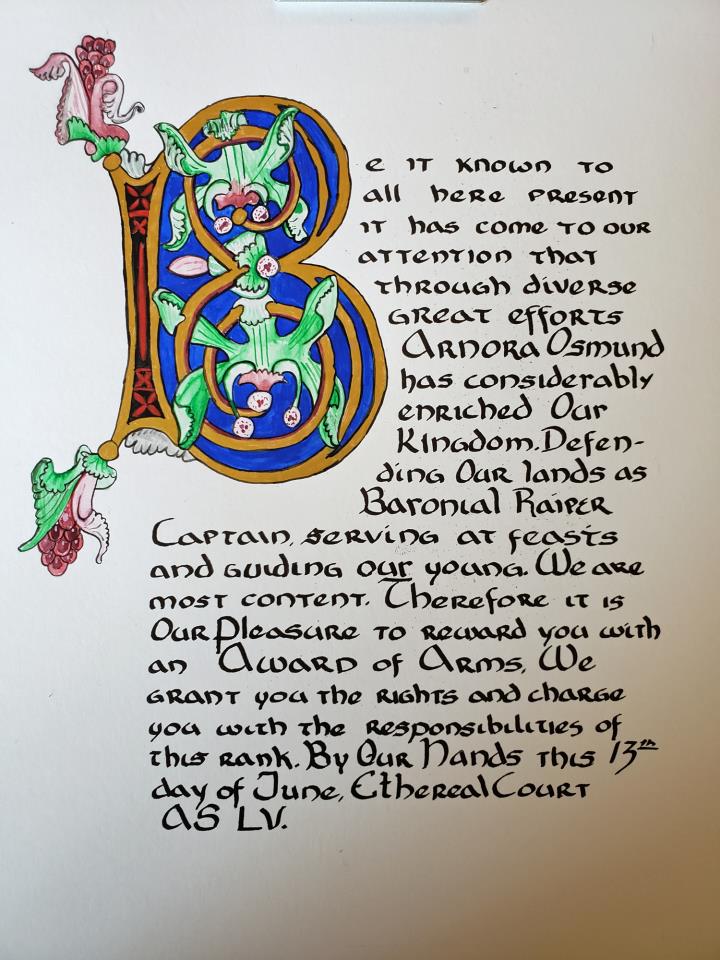 Be it known to
all here present
it has come to our
attention that
through diverse
great efforts
Arnora Osmund
has considerably
enriched Our
Kingdom. Defen-
ding Our lands as
Baronial Raiper
Captain, serving at feasts
and guiding our young. We are
most content. Therefore it is
Our Pleasure to reward you with
an Award of Arms. We
grant you the rights and charge
you with the responsibilities of
this rank. By Our Hands this 13th
day of June, Ethereal Court
AS LV.